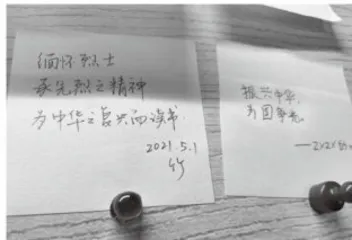 缅怀烈士
承先烈之精神
为中华之复兴而读书.
2021.5.1
竹
振兴中华,
为国争光.